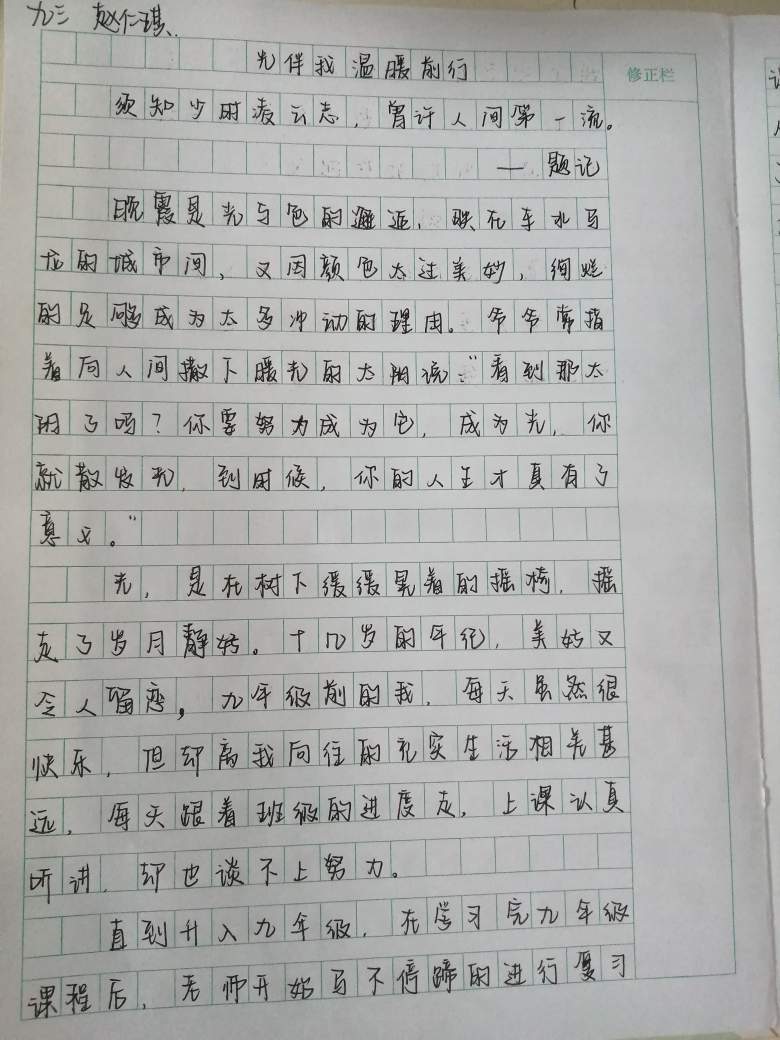 九三 赵仁琪
光伴我温暖前行
修正栏
须知少时凌云志，曾许人间第一流。
——题记
晚霞是光与色的邂逅，跌在车水马
龙的城市间，又因颜色太过美妙，绚烂
的足够成为太多冲动的理由。爷爷常指
着向人间撒下暖光的太阳说：“看到那太
阳了吗？你要努力成为它，成为光，你
就散发光，到时候，你的人生才真有了
意义。”
光，是在树下缓缓晃着的摇椅，摇
走了岁月静好。十几岁的年纪，美好又
令人留恋，九年级前的我，每天虽然很
快乐，但却离我向往的充实生活相差甚
远，每天跟着班级的进度走，上课认真
听讲，却也谈不上努力。
直到升入九年级，在学习完九年级
课程后，老师开始马不停蹄的进行复习